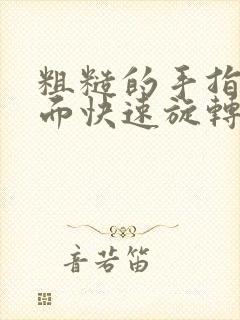 粗糙的手指
而快速旋轉
音若笛